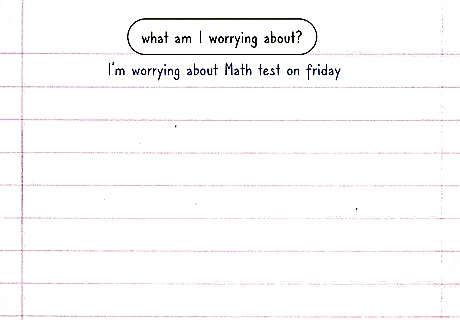 what am I worrying about?
I'm worrying about Math test on friday